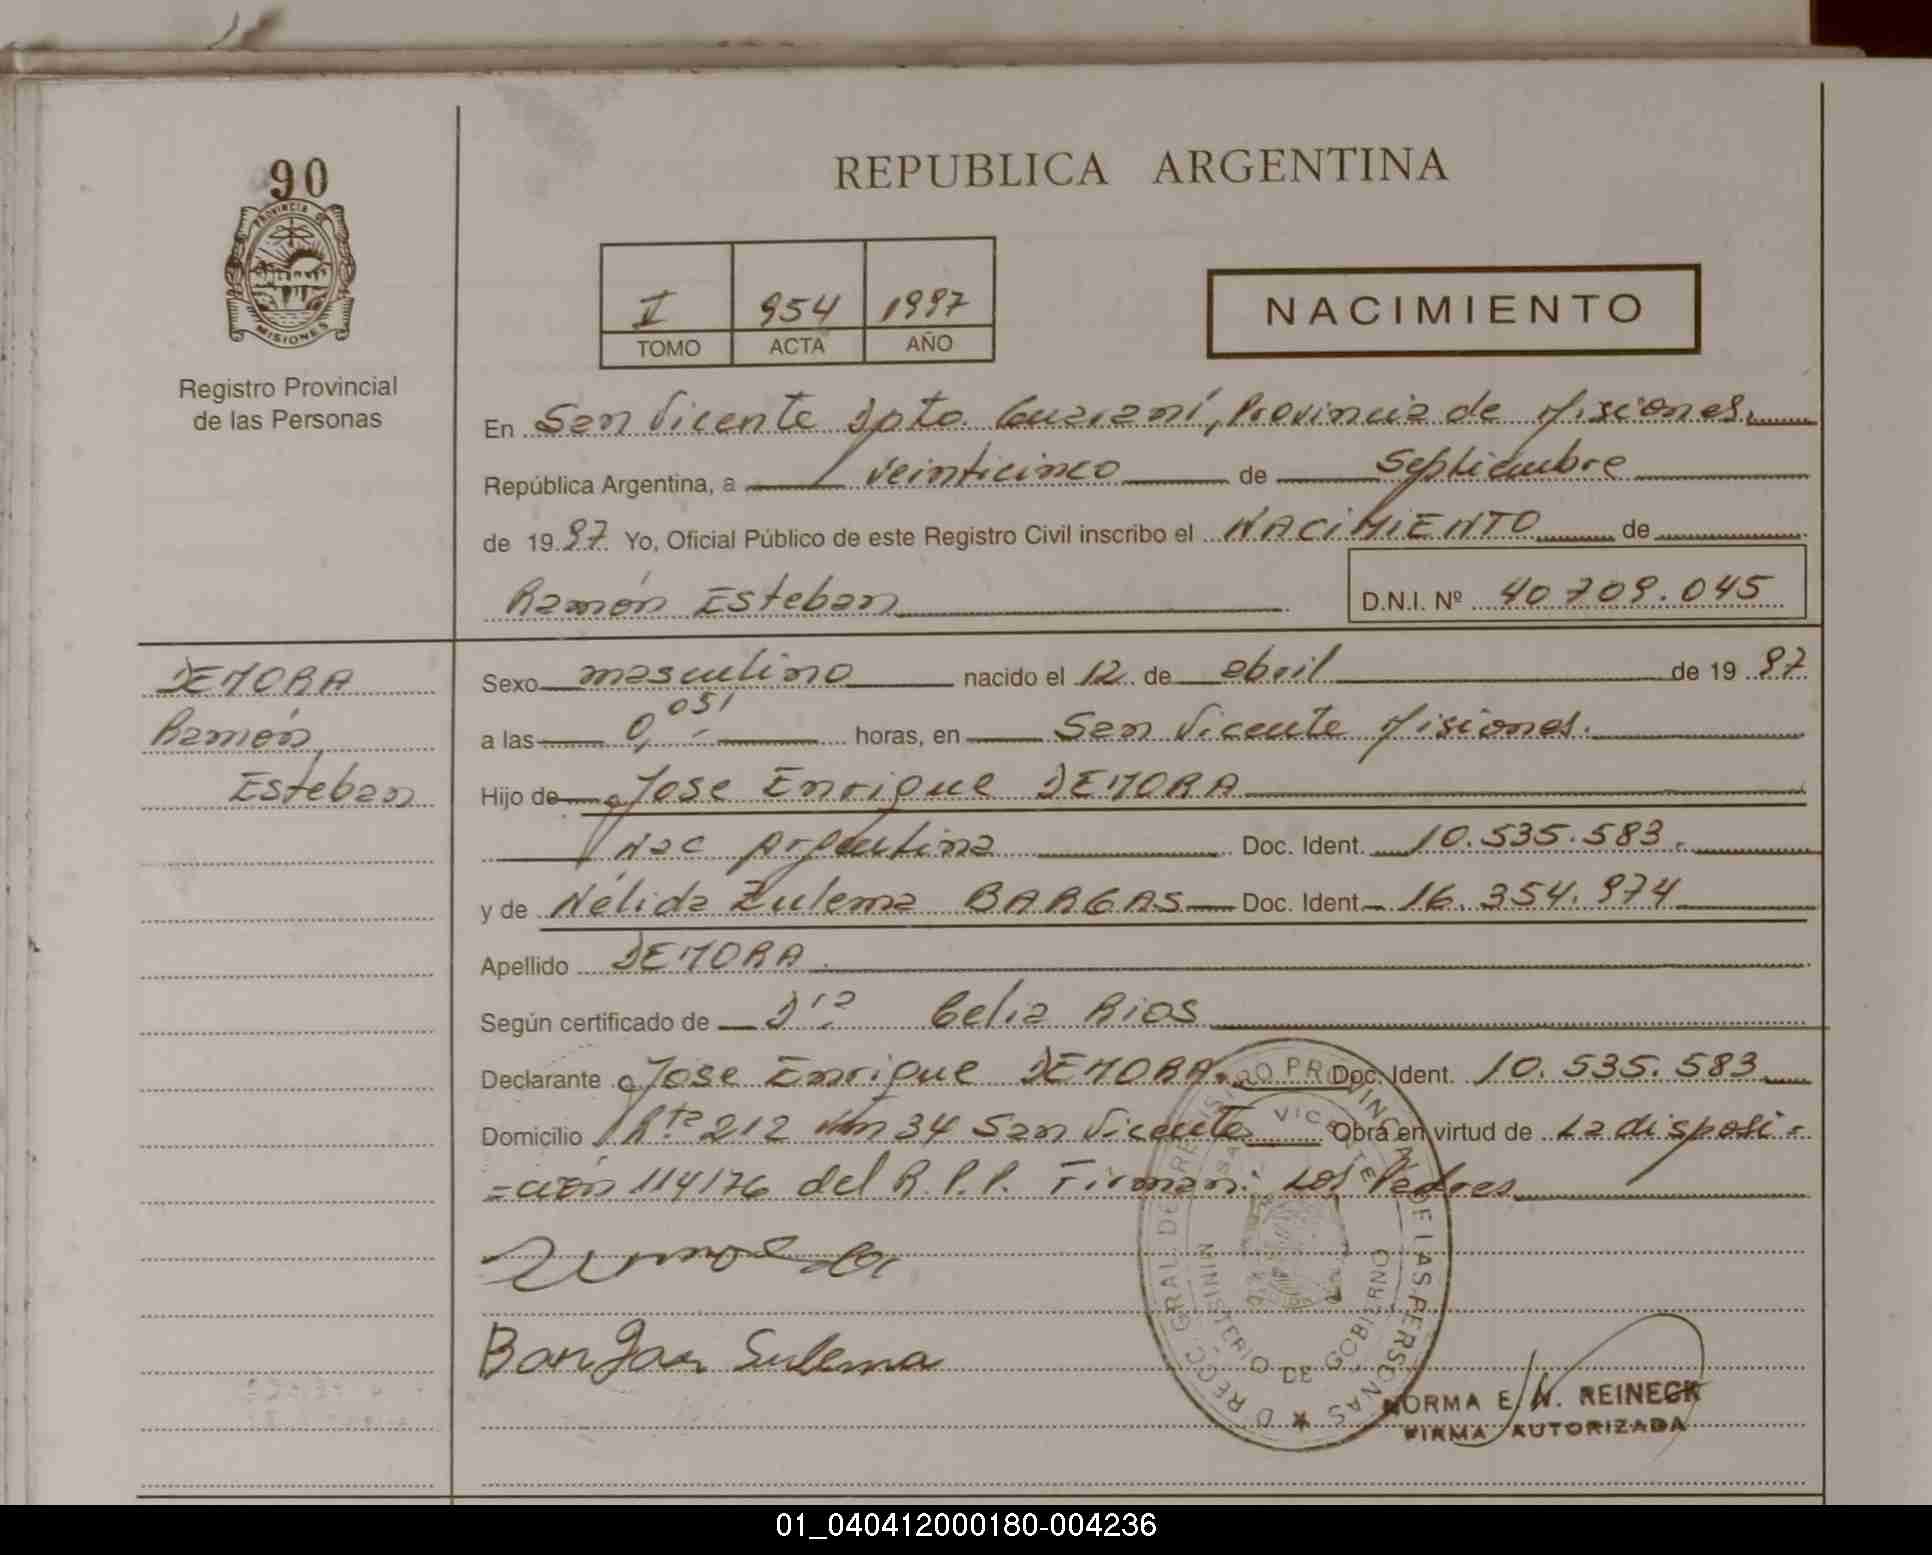 90
PROVINCIA DE
MISIONES
Registro Provincial
de las Personas
REPUBLICA ARGENTINA
I 954 1997
TOMO ACTA AÑO
NACIMIENTO
En San Vicente Dpto. Guaraní, Provincia de Misiones.
República Argentina, a veinticinco de Septiembre
de 1997 Yo, Oficial Público de este Registro Civil inscribo el NACIMIENTO de
Ramón Esteban D.N.I. Nº 40 709.045
DEMORA
Ramón
Esteban
Sexo masculino nacido el 12 de abril de 1997
a las 0,05' horas, en San Vicente Misiones.
Hijo de Jose Enrique DEMORA
Nac Argentina Doc. Ident. 10.535.583.
y de Nélida Zulema BARGAS Doc. Ident. 16.354.974
Apellido DEMORA
Según certificado de Dra Celia Rios
Declarante Jose Enrique DEMORA. Doc. Ident. 10.535.583
Domicilio Rta 212 Km 34 San Vicente Obra en virtud de La disposi-
=ción 114/76 del R.P.P. Firman: Los Padres
Sulema
DIRECC. GRAL. DE REGISTRO PROVINCIAL DE LAS PERSONAS
SAN VICENTE
MINISTERIO DE GOBIERNO
NORMA E. N. REINECK
FIRMA AUTORIZADA
01_040412000180-004236